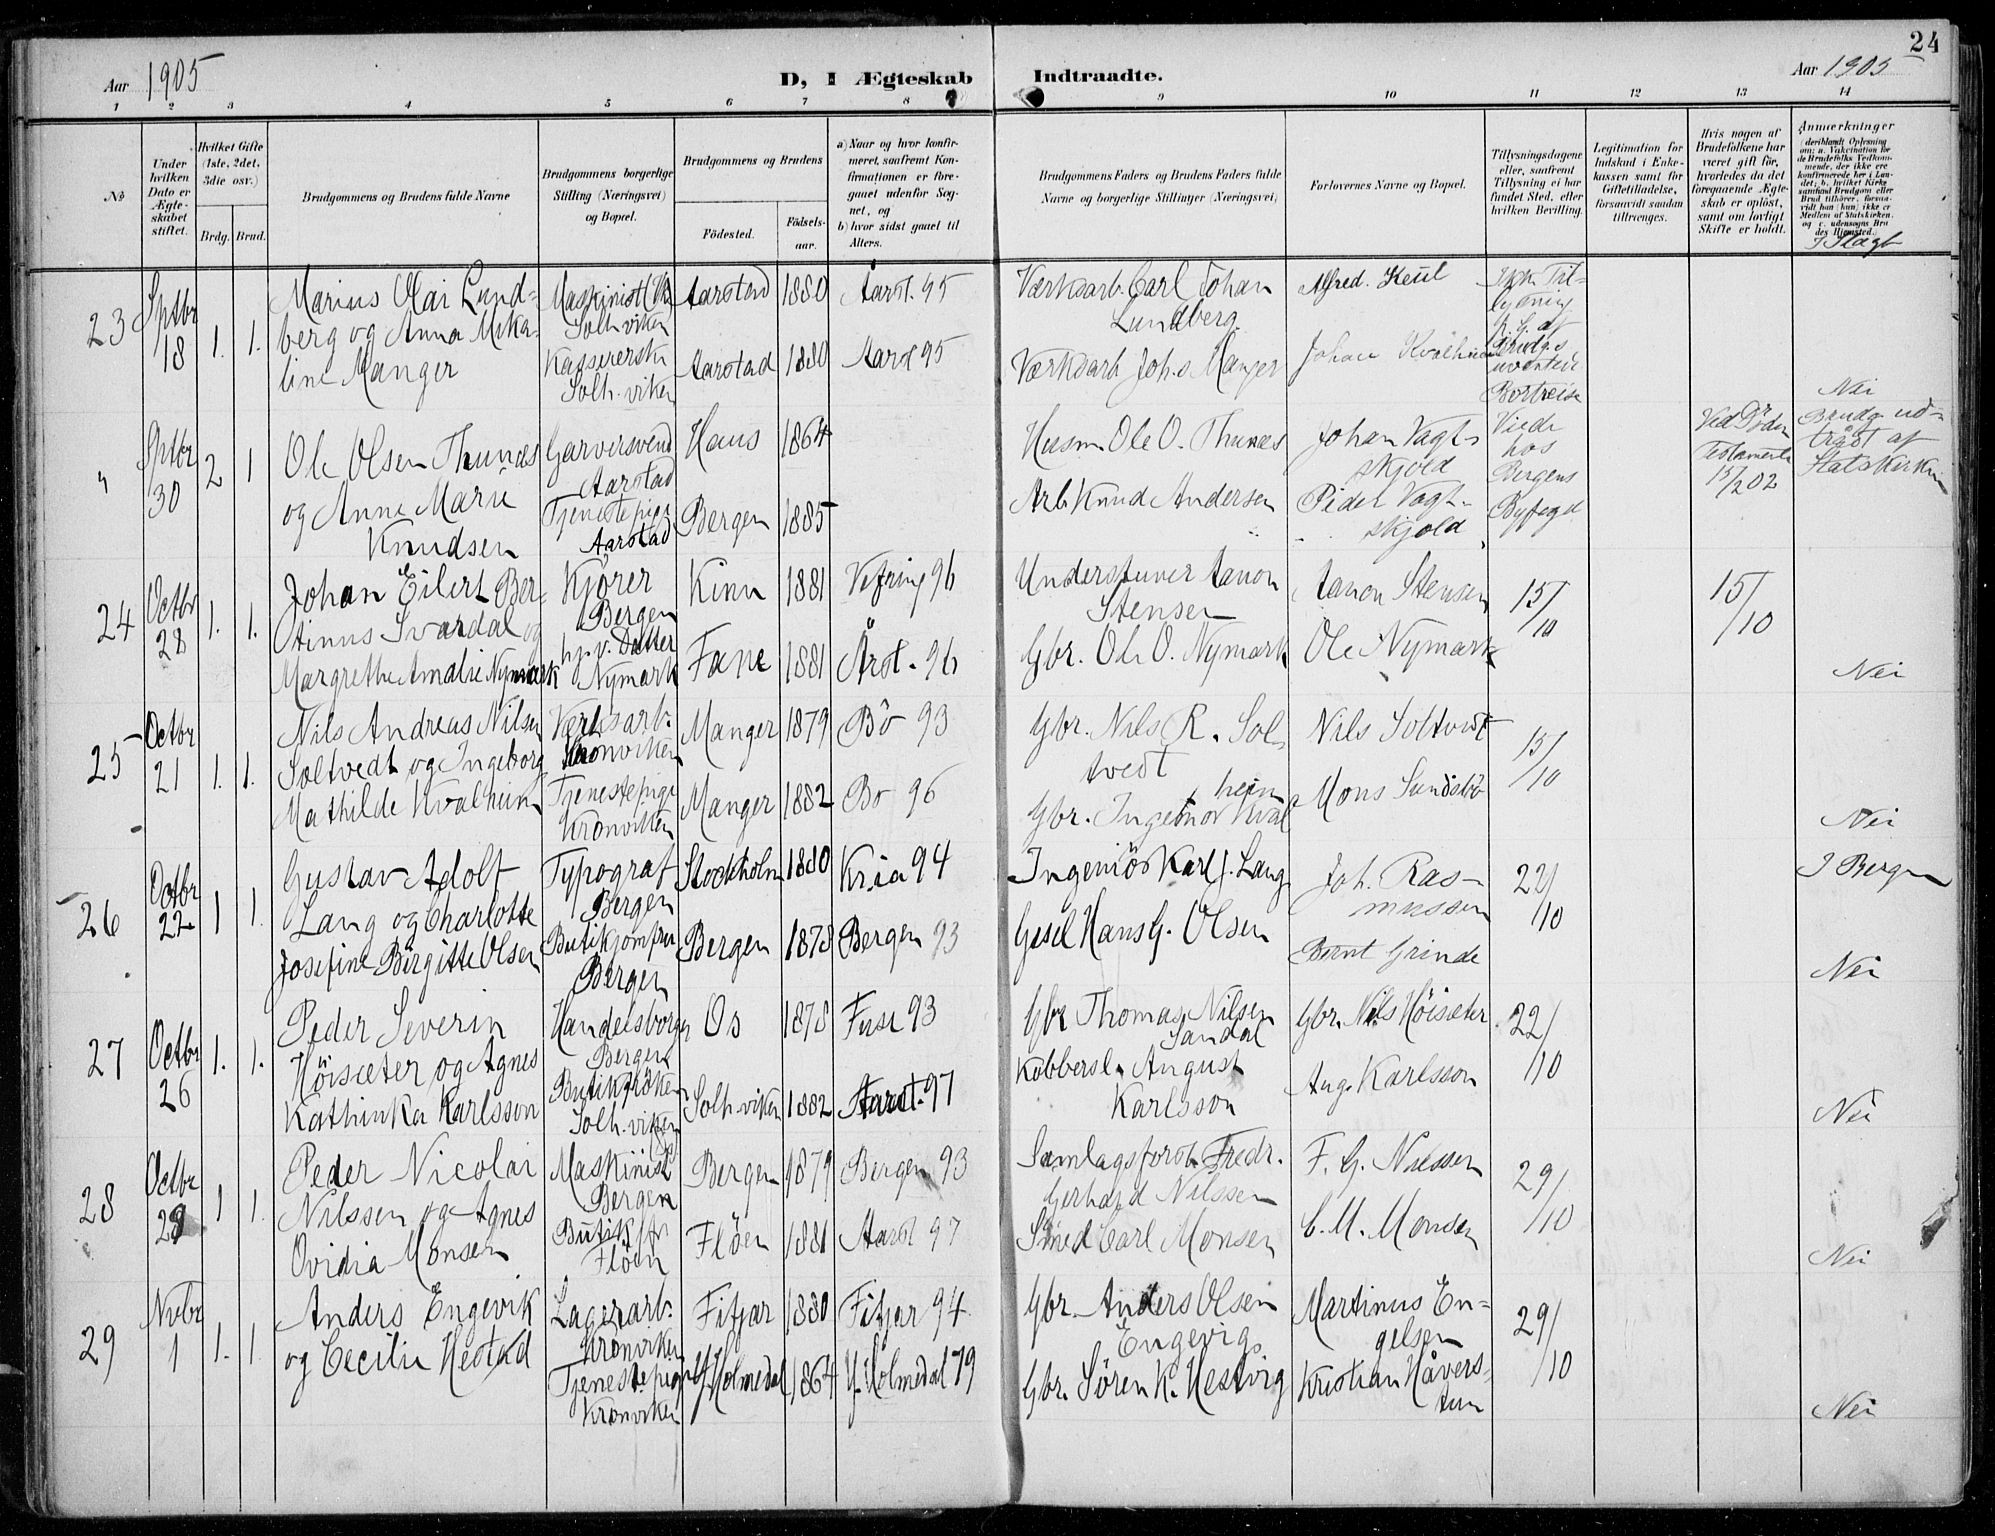 24
Aar 1905
D, I Ægteskab Indtraadte.
Aar 1905
1 2 3 4 5 6 7 8 9 10 11 12 13 14
No
Under hvilken Dato er Ægte-skabet stiftet.
Hvilket Gifte (1ste, 2det, 3die osv.)
Brdg. Brud.
Brudgommens og Brudens fulde Navne
Brudgommens borgerlige Stilling (Næringsvei) og Bopæl.
Brudgommens og Brudens
Fødested. Fødsels-aar.
a) Naar og hvor konfir-meret, saafremt Kon-firmationen er fore-gaaet udenfor Sog-net, og
b) hvor sidst gaaet til Alters.
Brudgommens Faders og Brudens Faders fulde Navne og borgerlige Stillinger (Næringsvei)
Forlovernes Navne og Bopæl.
Tillysningsdagene eller, saafremt Tillysning ei har fundet Sted, efter hvilken Bevilling.
Legitimation for Indskud i Enke-kassen samt for Giftetilladelse, forsaavidt saadan tiltrænges.
Hvis nogen af Brudefolkene har været gift før, hvorledes da det foregaaende Ægte-skab er opløst, samt om lovligt Skifte er holdt.
Anmærkninger
(deriblandt Oplysning om: a. Vakcination for de Brudefolks Vedkom-mende, der ikke ere konfirmerede her i Lan-det; b. hvilket Kirke-samfund Brudgom eller Brud tilhører, forsaa-vidt han (hun) ikke er Medlem af Statskirken, og c. udensogns Bru-des Hjemsted.)
I Slægt
23
Sptbr
18
1. 1.
Marius Olai Lund-
berg og Anna Mika-
line Manger
Maskinist
Solh.viken
Kassererske
Solh.viken
Aarstad 1880 Aarst. 95
Aarstad 1880 Aarst 95
Værksarb. Carl Johan
Lundberg.
Værksarb Johs Manger
Alfred Keul
Ikke Til-
lysning
p. G. af
Brudgs
uventede
Bortreise
Nei
"
Sptbr
30
2 1
Ole Olsen Thunæs
og Anne Marie
Knudsen
Garversvend
Aarstad
Tjenestepige
Aarstad
Haus 1864
Bergen 1885
Husm Ole O. Thunæs
Arb. Knud Andersen
Johan Vagt-
skjold
Peder Vagt-
skjold
Viede
hos
Bergens
Byfogd
Ved Døden
Testamente
15/2 02
Brudg. ud-
trådt af
Statskirken
24
Octbr
28
1. 1.
Johan Eilert Ber-
tinus Svardal og
Margrethe Amalie Nymark
Kjører
Bergen
hj.v. Datter
Nymark
Kinn 1881 Vefring 96
Fane 1881 Årst. 96
Understuver Aanon
Stensen
Gbr. Ole O. Nymark
Aanon Stensen
Ole Nymark
15/10
15/10
Nei
25
Octbr
21
1. 1.
Nils Andreas Nilsen
Soltvedt og Ingeborg
Mathilde Kvalheim
Værksarb.
Kronviken
Tjenestepige
Kronviken
Manger 1879 Bö 93
Manger 1882 Bö 96
Gbr. Nils R. Sol-
tvedt
Gbr. Ingebrigt Kval
heim
Nils Soltvedt
Mons Sundsbö
15/10
Nei
26
Octbr
22
1 1.
Gustav Adolf
Lang og Charlotte
Josefine Birgitte Olsen
Typograf
Bergen
Butikjomfru
Bergen
Stockholm 1880 Kr.ia 94
Bergen 1878 Bergen 93
Ingeniör Karl J. Lang
Gesel Hans G. Olsen
Joh. Ras-
mussen
Bernt Grinde
22/10
I Bergen
Nei
27
Octbr
26
1. 1.
Peder Severin
Höisæter og Agnes
Kathinka Karlsson
Handelsborger
Bergen
Butikfröken
Solh.viken
Os 1878 Fuse 93
Solh.viken 1882 Aarst. 97
Gbr Thomas Nilsen
Sandal
Kobbersl. August
Karlsson
Gbr. Nils Höisæter
Aug. Karlsson
22/10
Nei
28
Octbr
29
1 1.
Peder Nicolai
Nilssen og Agnes
Ovidia Monsen
Maskinist
Bergen
Butikjfr
Flöen
Bergen 1879 Bergen 93
Flöen 1881 Aarst 97
Samlagsforst. Fredr.
Gerhard Nilssen
Smed Carl Monsen
F. G. Nilssen
C. M. Monsen
29/10
Nei
29
Nvbr
1
1. 1.
Anders Engevik
og Cecilie Hestad
Lagerarb.
Kronviken
Tjenestepige
Kronviken
Fitjar 1880 Fitjar 94
Y. Holmedal 1864 Y. Holmedal 79
Gbr. Anders Olsen
Engevig
Gbr. Sören K. Hestvig
Martinus En-
gelsen
Kristian Håvers-
tun
29/10
Nei